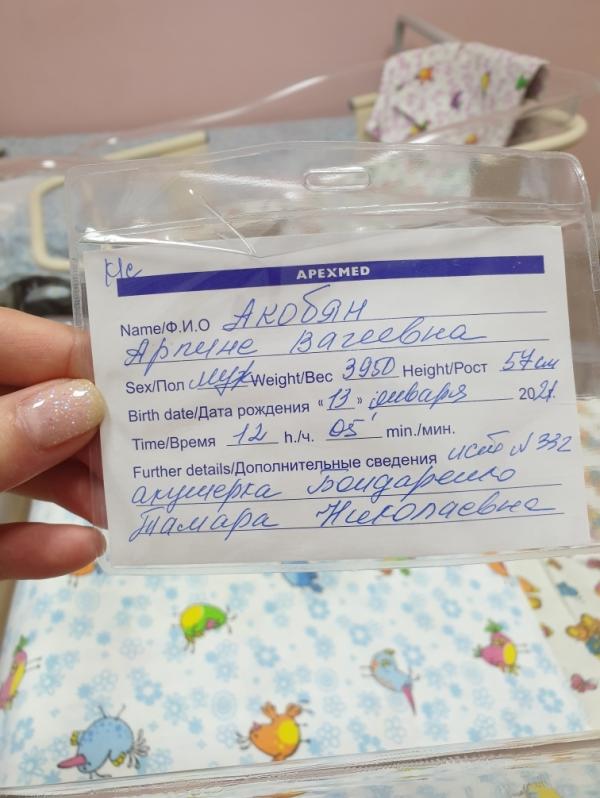 К/с
APEXMED
Name/Ф.И.О Акобян
Арпине Вагеевна
Sex/Пол муж Weight/Вес 3950 Height/Рост 57см
Birth date/Дата рождения «13» января 2021.
Time/Время 12 h./ч. 05' min./мин.
Further details/Дополнительные сведения ист N 332
акушерка Бондаренко
Тамара Николаевна